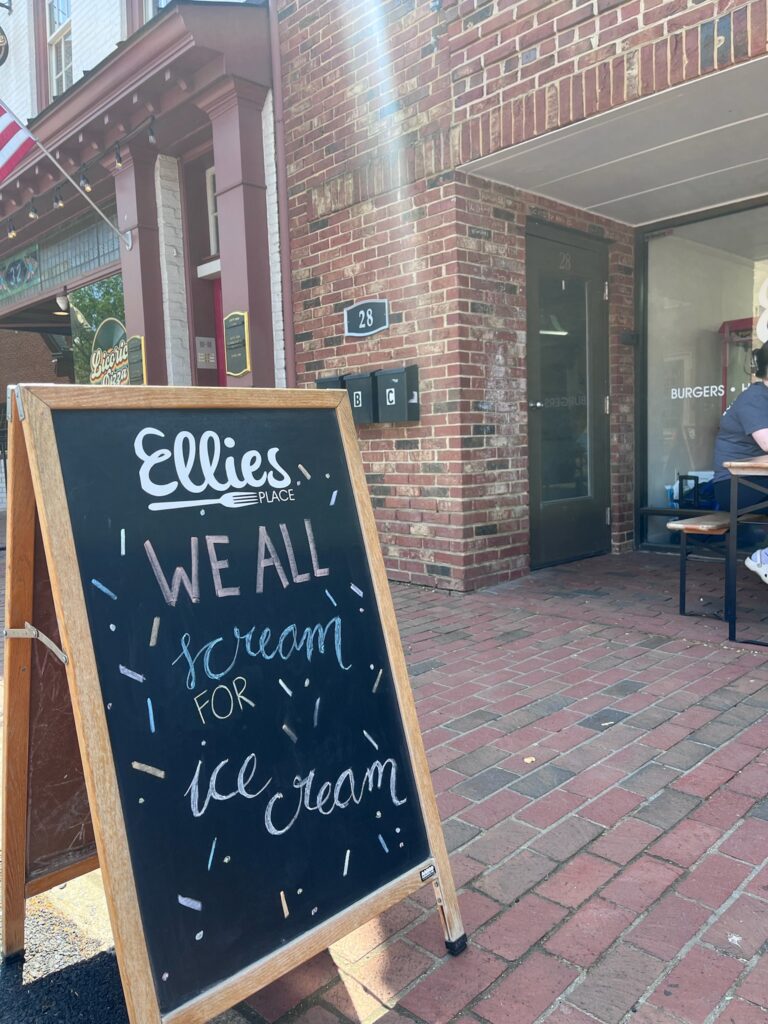 Ellies
PLACE
WE ALL
scream
FOR
ice cream
28
B
C
28
BURGERS
BURGERS • H
47